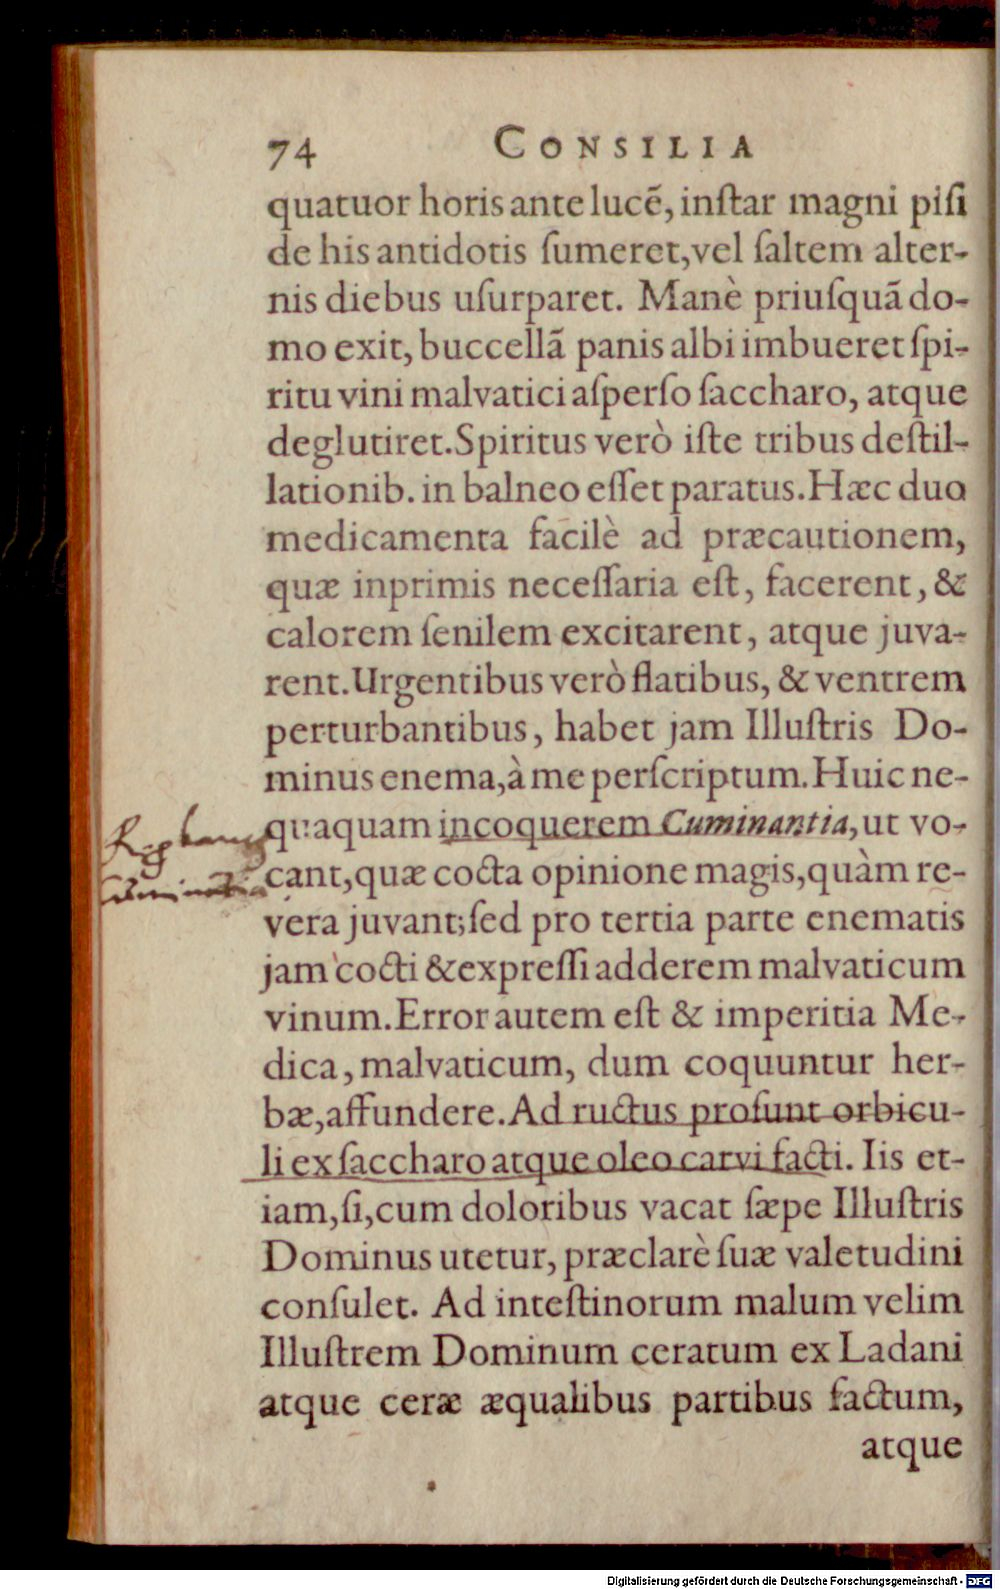 74 CONSILIA
quatuor horis ante lucē, inſtar magni piſi
de his antidotis ſumeret, vel ſaltem alter-
nis diebus uſurparet. Manè priuſquā do-
mo exit, buccellā panis albi imbueret ſpi-
ritu vini malvatici aſperſo ſaccharo, atque
deglutiret. Spiritus verò iſte tribus deſtil-
lationib. in balneo eſſet paratus. Hæc duo
medicamenta facilè ad præcautionem,
quæ inprimis neceſſaria eſt, facerent, &
calorem ſenilem excitarent, atque juva-
rent. Urgentibus verò flatibus, & ventrem
perturbantibus, habet jam Illuſtris Do-
minus enema, à me perſcriptum. Huic ne-
quaquam incoquerem Cuminantia, ut vo-
cant, quæ cocta opinione magis, quàm re-
vera juvant; ſed pro tertia parte enematis
jam cocti & expreſſi adderem malvaticum
vinum. Error autem eſt & imperitia Me-
dica, malvaticum, dum coquuntur her-
bæ, affundere. Ad ructus proſunt orbicu-
li ex ſaccharo atque oleo carvi facti. Iis et-
iam, ſi, cum doloribus vacat ſæpe Illuſtris
Dominus utetur, præclarè ſuæ valetudini
conſulet. Ad inteſtinorum malum velim
Illuſtrem Dominum ceratum ex Ladani
atque ceræ æqualibus partibus factum,
atque
Digitalisierung gefördert durch die Deutsche Forschungsgemeinschaft - DFG